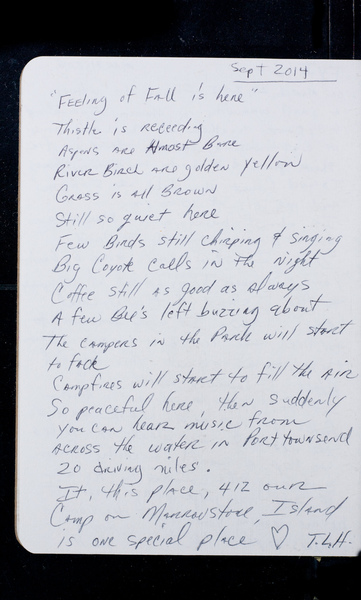 Sept 2014
"Feeling of Fall is here"
Thistle is receeding
Aspens are Almost Bare
River Birch are golden yellow
Grass is all Brown
Still so quiet here
Few Birds still chirping & singing
Big Coyote calls in the Night
Coffee still as good as Always
A few Bee's left buzzing about
The campers in the Park will start
to
Campfires will start to fill the air
So peaceful here, then suddenly
you can hear music from
across the water in Port townsend
20 driving miles.
It, this place, 412 our
Camp on Marrowstone, Island
is one special place ♡ T.L.H.